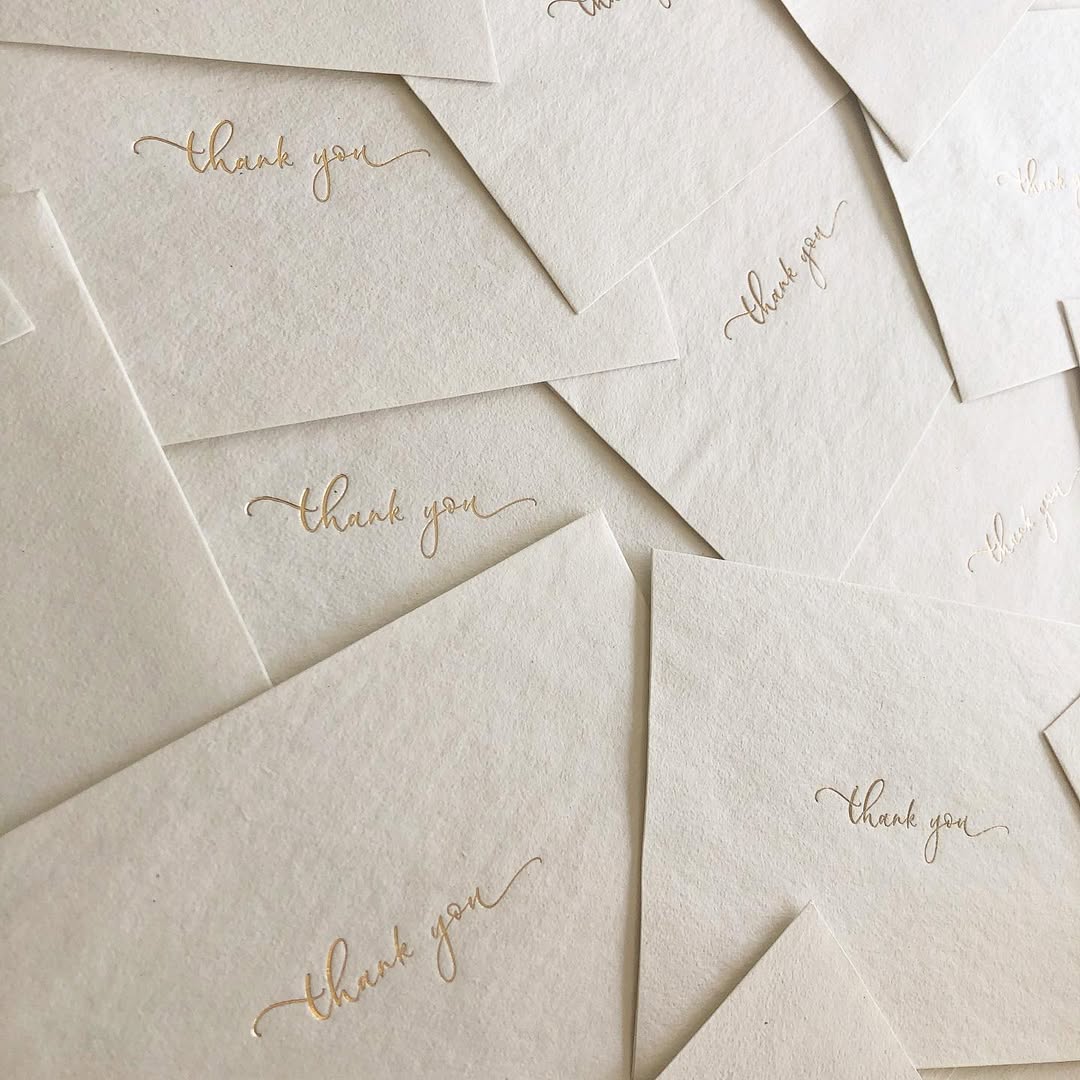 thank you
thank you
thank you
thank you
thank you
thank you